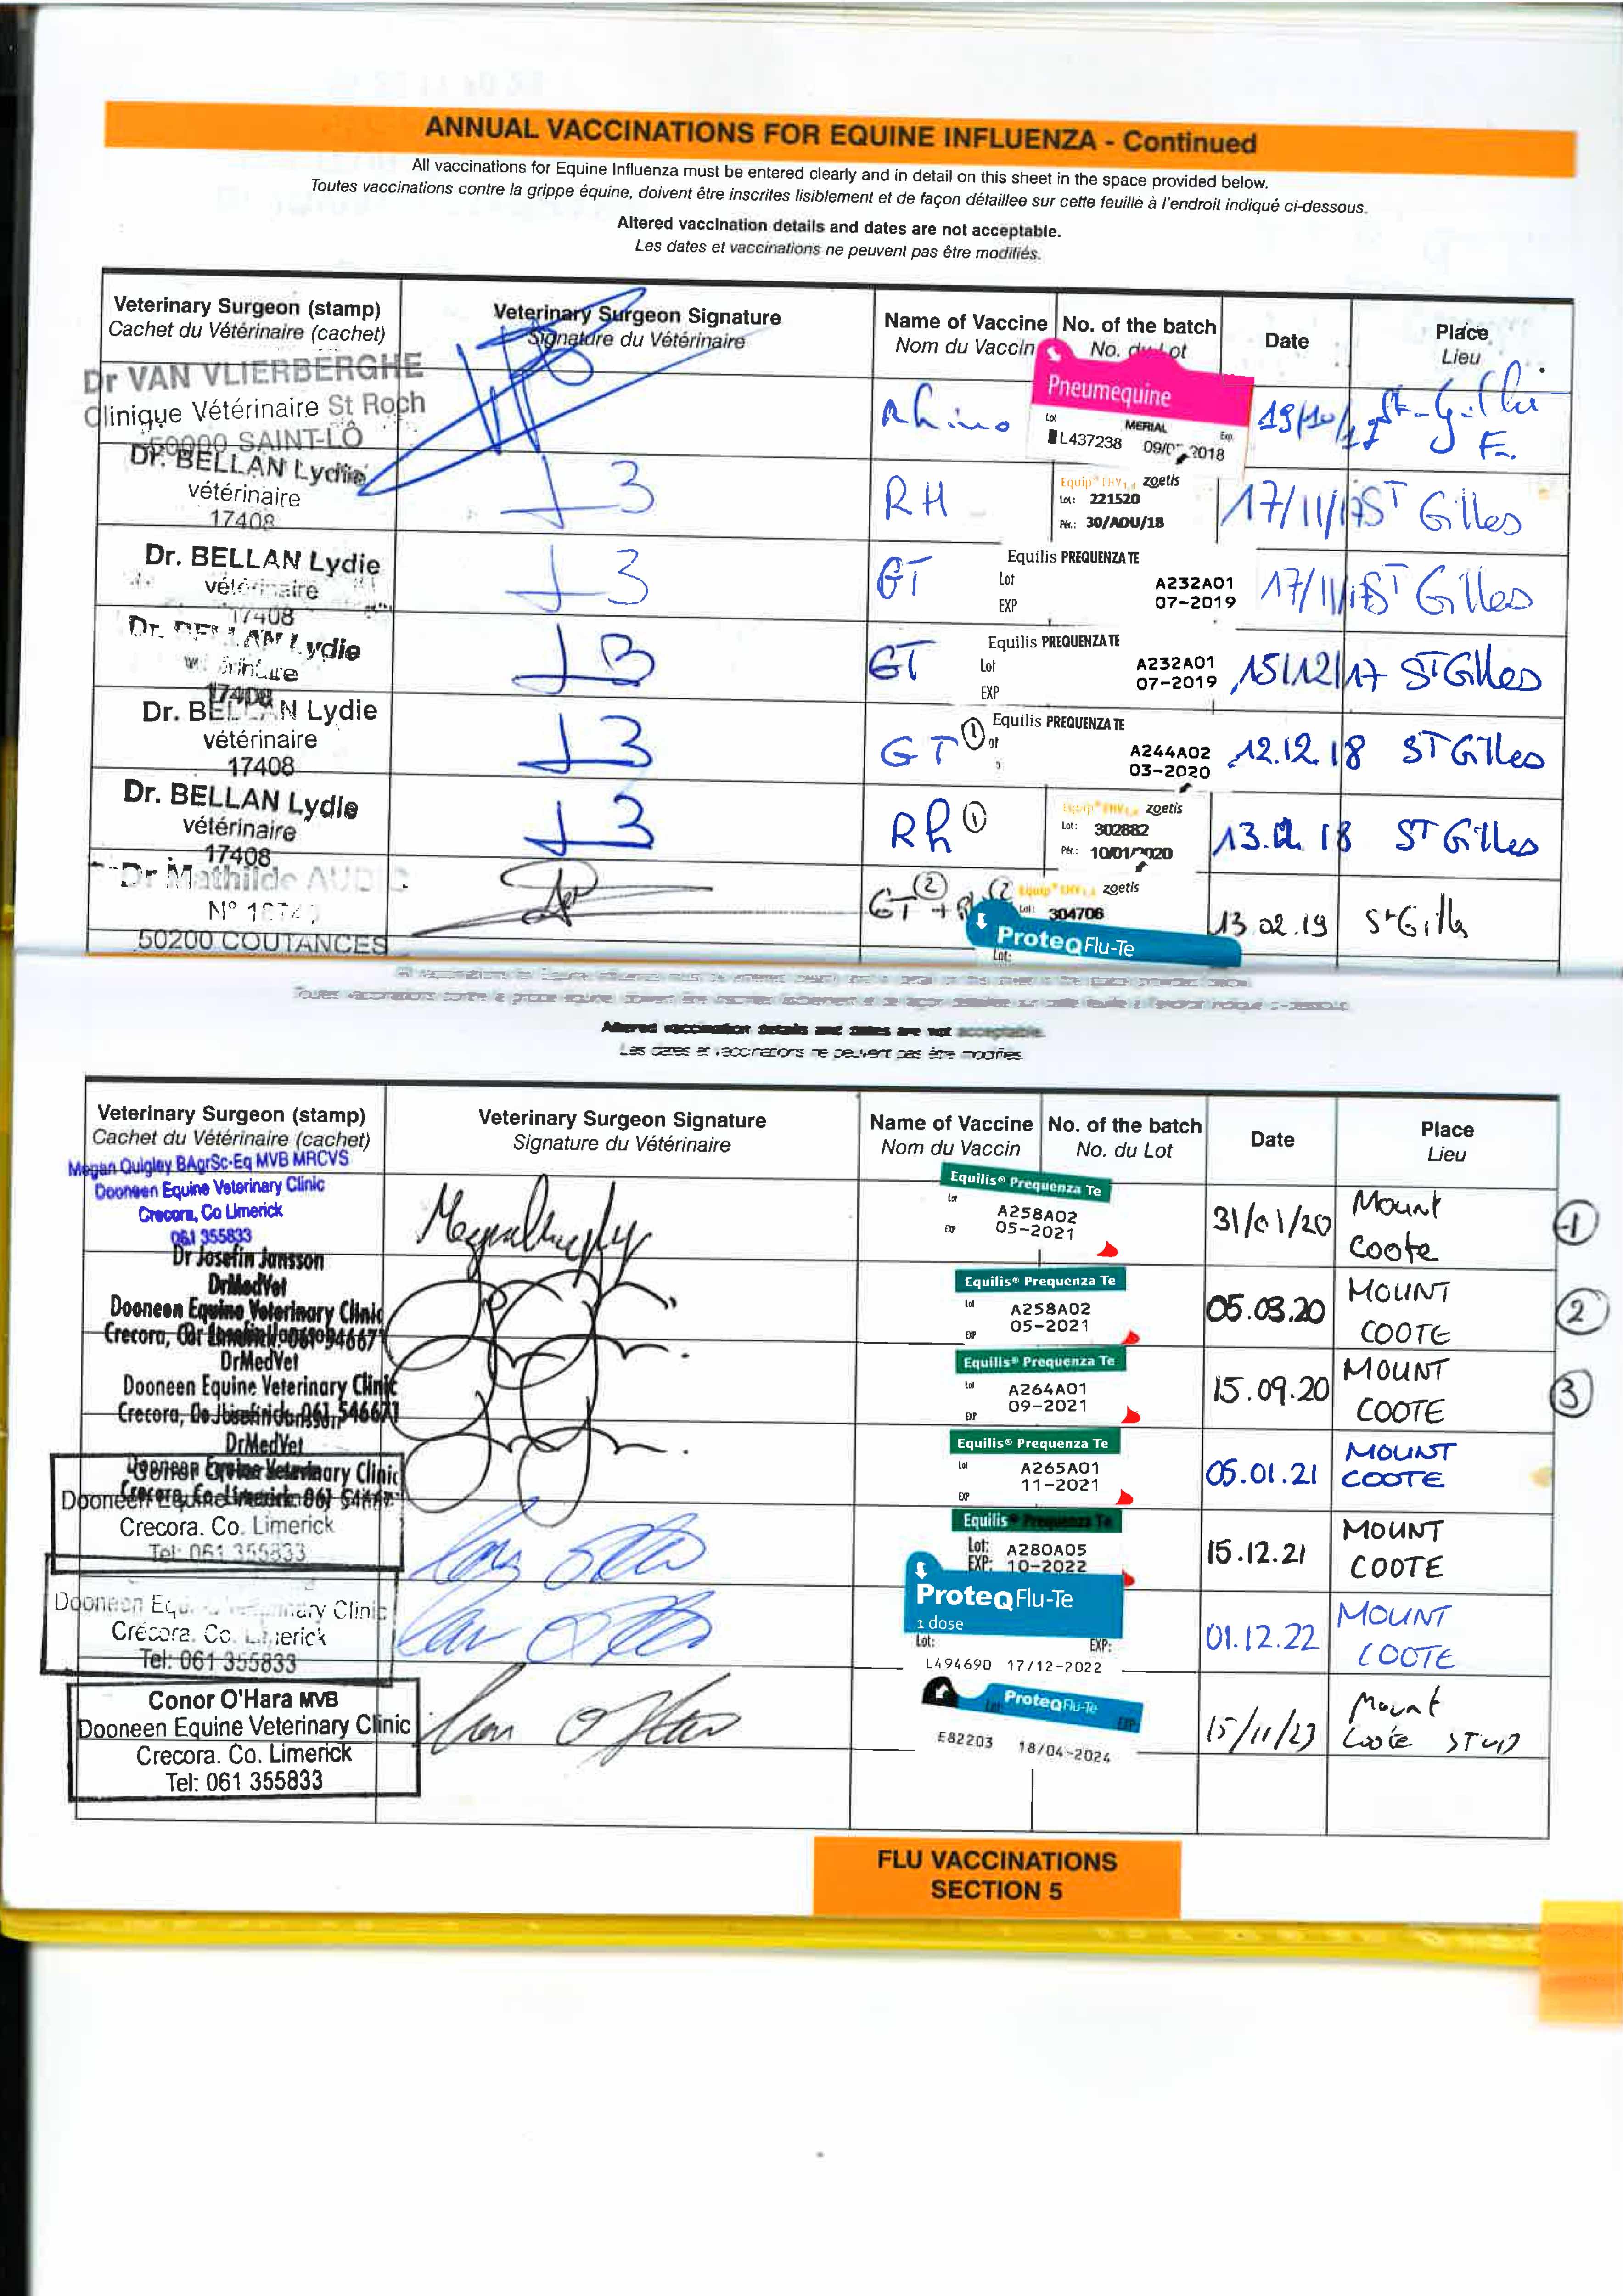 ANNUAL VACCINATIONS FOR EQUINE INFLUENZA - Continued
All vaccinations for Equine Influenza must be entered clearly and in detail on this sheet in the space provided below.
Toutes vaccinations contre la grippe équine, doivent être inscrites lisiblement et de façon détaillee sur cette feuille à l'endroit indiqué ci-dessous.
Altered vaccination details and dates are not acceptable.
Les dates et vaccinations ne peuvent pas être modifiés.
Veterinary Surgeon (stamp) Veterinary Surgeon Signature Name of Vaccine No. of the batch Date Place
Cachet du Vétérinaire (cachet) Signature du Vétérinaire Nom du Vaccin No. du Lot Lieu
Dr VAN VLIERBERGHE
Clinique Vétérinaire St Roch
50000 SAINT-LÔ
Rhino
Pneumequine
Lot MERIAL Exp.
L437238 2018
19/10/17
Dr. BELLAN Lydie
vétérinaire
17408
RH
Equip zoetis
Lot: 221520
Pér.: 30/AOU/18
17/11/17 ST Gilles
Dr. BELLAN Lydie
vétérinaire
17408
GT
Equilis PREQUENZA TE
Lot A232A01
EXP 07-2019
17/11/17 ST Gilles
Dr. BELLAN Lydie
17408
GT
Equilis PREQUENZA TE
Lot A232A01
EXP 07-2019
15/12/17 ST Gilles
Dr. BELLAN Lydie
vétérinaire
17408
GT 1
Equilis PREQUENZA TE
A244A02
03-2020
12.12.18 ST Gilles
Dr. BELLAN Lydie
vétérinaire
17408
Rh 1
Equip zoetis
Lot: 302882
Pér.: 10/01/2020
13.12.18 ST Gilles
Dr Mathilde
50200 COUTANCES
GT 2 + Rh 2
Equip zoetis
Lot: 304706
ProteqFlu-Te
Lot:
13.02.19 St Gilles
Altered vaccination details and dates are not acceptable.
Les dates et vaccinations ne peuvent pas être modifiés.
Veterinary Surgeon (stamp) Veterinary Surgeon Signature Name of Vaccine No. of the batch Date Place
Cachet du Vétérinaire (cachet) Signature du Vétérinaire Nom du Vaccin No. du Lot Lieu
Megan Quigley BAgrSc-Eq MVB MRCVS
Dooneen Equine Veterinary Clinic
Crecora, Co Limerick
061 355833
Equilis® Prequenza Te
Lot A258A02
EXP 05-2021
31/01/20 Mount Coote 1
Dr Josefin Jansson
DrMedVet
Dooneen Equine Veterinary Clinic
Equilis® Prequenza Te
Lot A258A02
EXP 05-2021
05.03.20 MOUNT COOTE 2
DrMedVet
Dooneen Equine Veterinary Clinic
Equilis® Prequenza Te
Lot A264A01
EXP 09-2021
15.09.20 MOUNT COOTE 3
DrMedVet
Equilis® Prequenza Te
Lot A265A01
EXP 11-2021
05.01.21 MOUNT COOTE
Crecora. Co. Limerick
Tel: 061 355833
Equilis Prequenza Te
Lot: A280A05
EXP: 10-2022
15.12.21 MOUNT COOTE
Dooneen Equine Veterinary Clinic
Crecora. Co. Limerick
Tel: 061 355833
ProteqFlu-Te
1 dose
Lot: EXP:
L494690 17/12-2022
01.12.22 MOUNT COOTE
Conor O'Hara MVB
Dooneen Equine Veterinary Clinic
Crecora. Co. Limerick
Tel: 061 355833
ProteqFlu-Te
Lot: EXP:
E82203 18/04-2024
15/11/23 Mount Coote STUD
FLU VACCINATIONS
SECTION 5